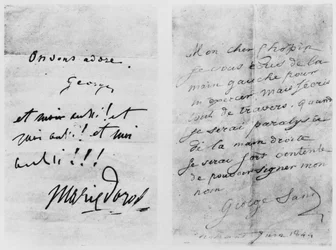 On vous adore.
George
et moi aussi! et
moi aussi! et moi
aussi!!!
Marie Dorval
Mon cher Chopin
je vous écris de la
main gauche pour
m'exercer mais j'écris
tout de travers. quand
je serai paralysée
de la main droite
je serai fort contente
de pouvoir signer mon
nom
George Sand
1844